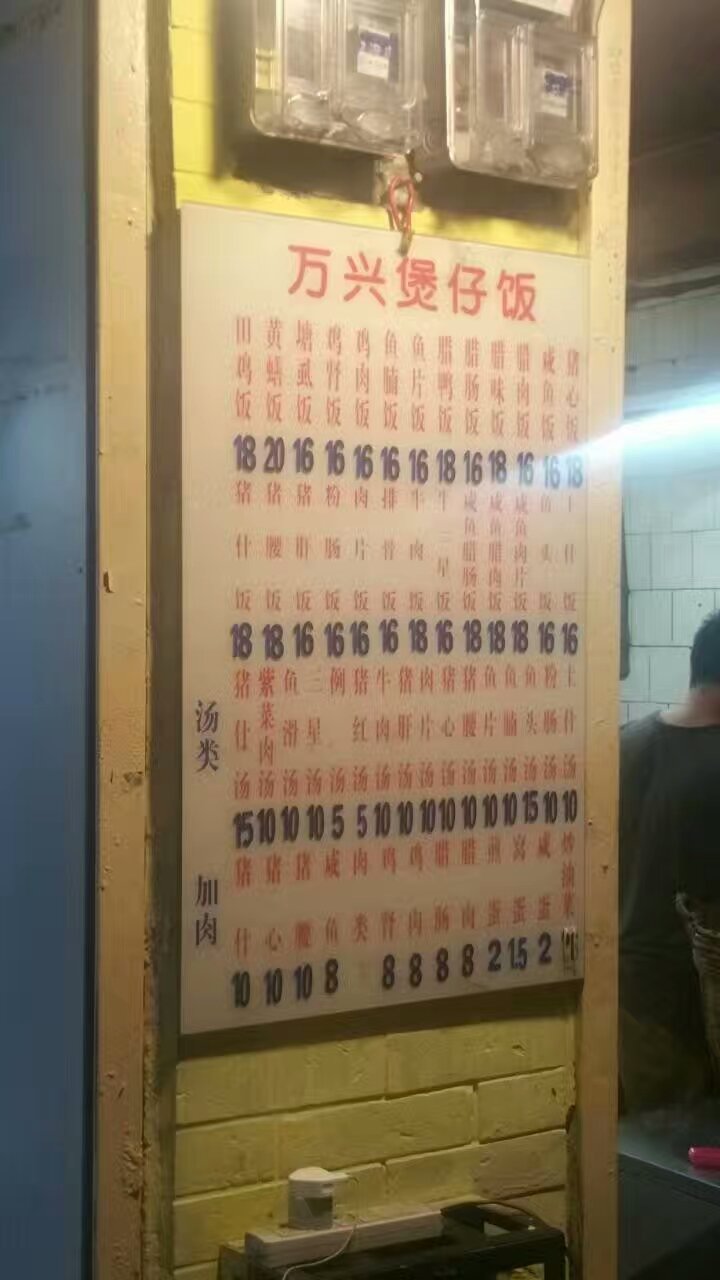 万兴煲仔饭
田鸡饭 黄鳝饭 塘虱饭 鸡肾饭 鸡肉饭 鱼腩饭 鱼片饭 腊鸭饭 腊肠饭 腊味饭 腊肉饭 咸鱼饭 猪心饭
18 20 16 16 16 16 16 18 16 18 16 16 18
猪什饭 猪腰饭 猪肝饭 粉肠饭 肉片饭 排骨饭 牛肉饭 牛三星饭 咸鱼腊肠饭 咸鱼腊肉饭 咸鱼肉片饭 鱼头饭 上什饭
18 18 16 16 16 16 18 16 18 18 18 16 16
汤类
猪什汤 紫菜肉汤 鱼滑汤 三星汤 例汤 猪红汤 牛肉汤 猪肝汤 肉片汤 猪心汤 猪腰汤 鱼片汤 鱼腩汤 鱼头汤 粉肠汤 上什汤
15 10 10 10 5 5 10 10 10 10 10 10 10 15 10 10
加肉
猪什 猪心 猪腰 咸鱼 肉类 鸡肾 鸡肉 腊肠 腊肉 煎蛋 窝蛋 咸蛋 炒油菜
10 10 10 8 8 8 8 8 2 1.5 2